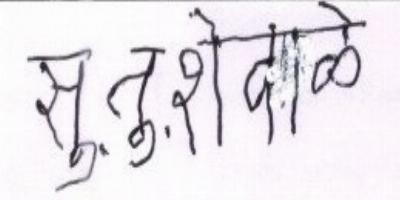 सु.तु.शेवाळे